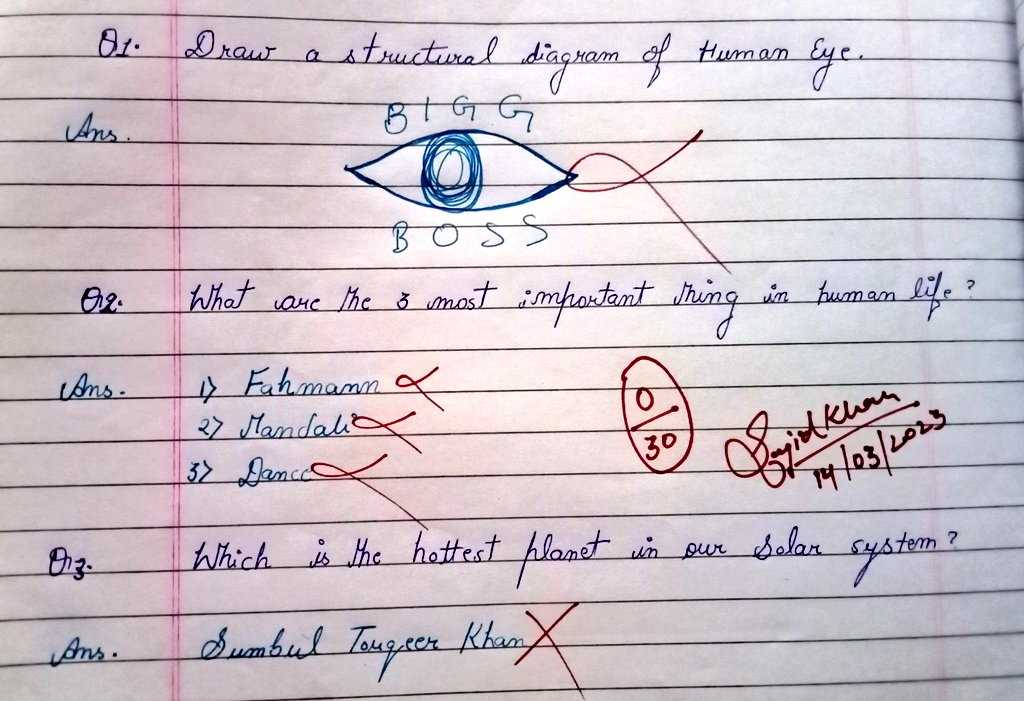 Q1. Draw a structural diagram of Human Eye.
Ans.
BIGG
BOSS
Q2. What are the 3 most important thing in human life?
Ans. 1) Fahmann
2) Mandali
3) Dance
0/30
Sajid Khan
14/03/2023
Q3. Which is the hottest planet in our Solar system?
Ans. Sumbul Touqeer Khan